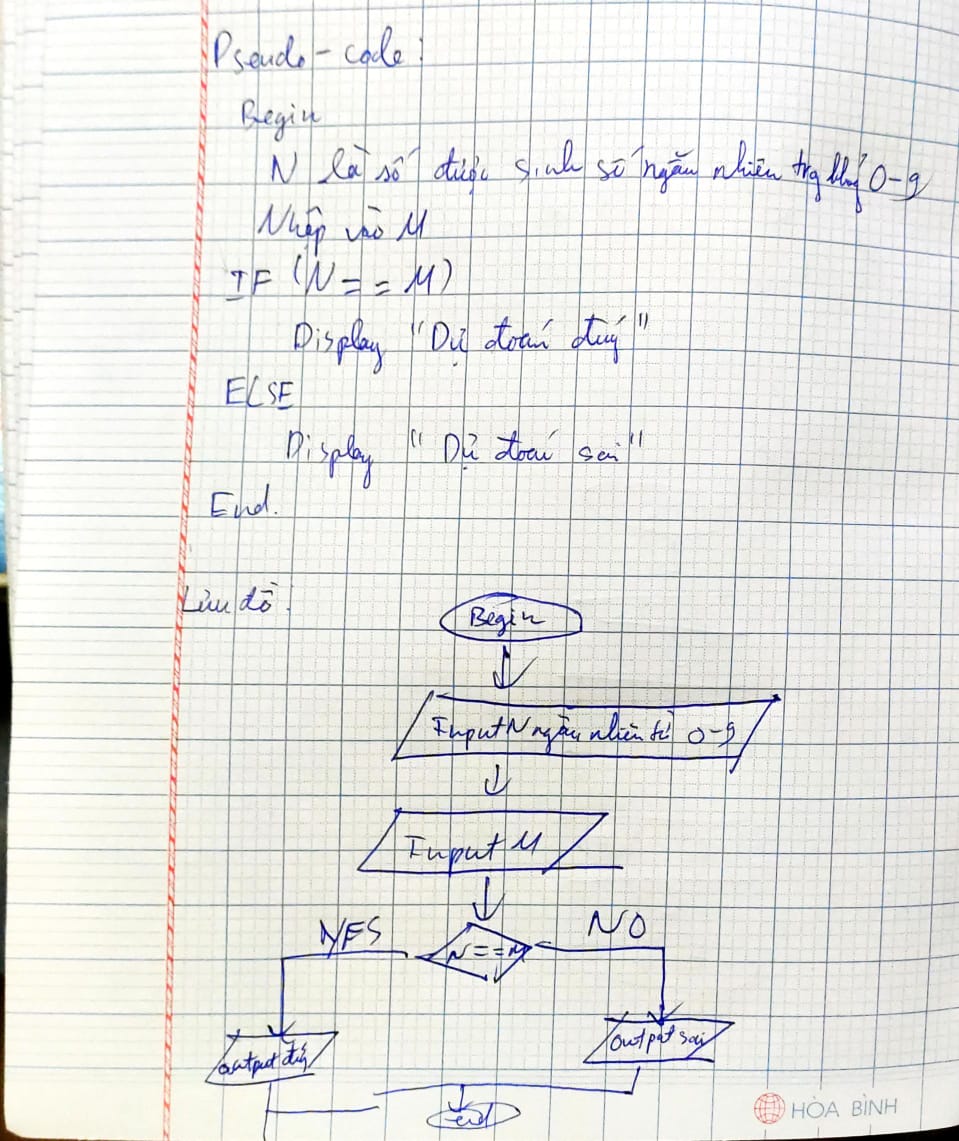 Pseudo-code:
Begin
N là số được sinh số ngẫu nhiên trg khg 0-9
Nhập vào M
IF (N == M)
Display "Dự đoán đúg"
ELSE
Display "Dự đoán sai"
End.
Lưu đồ:
Begin
Input N ngẫu nhiên từ 0-9
Input M
YES
NO
N==M
output đúg
output sai
End
HÒA BÌNH